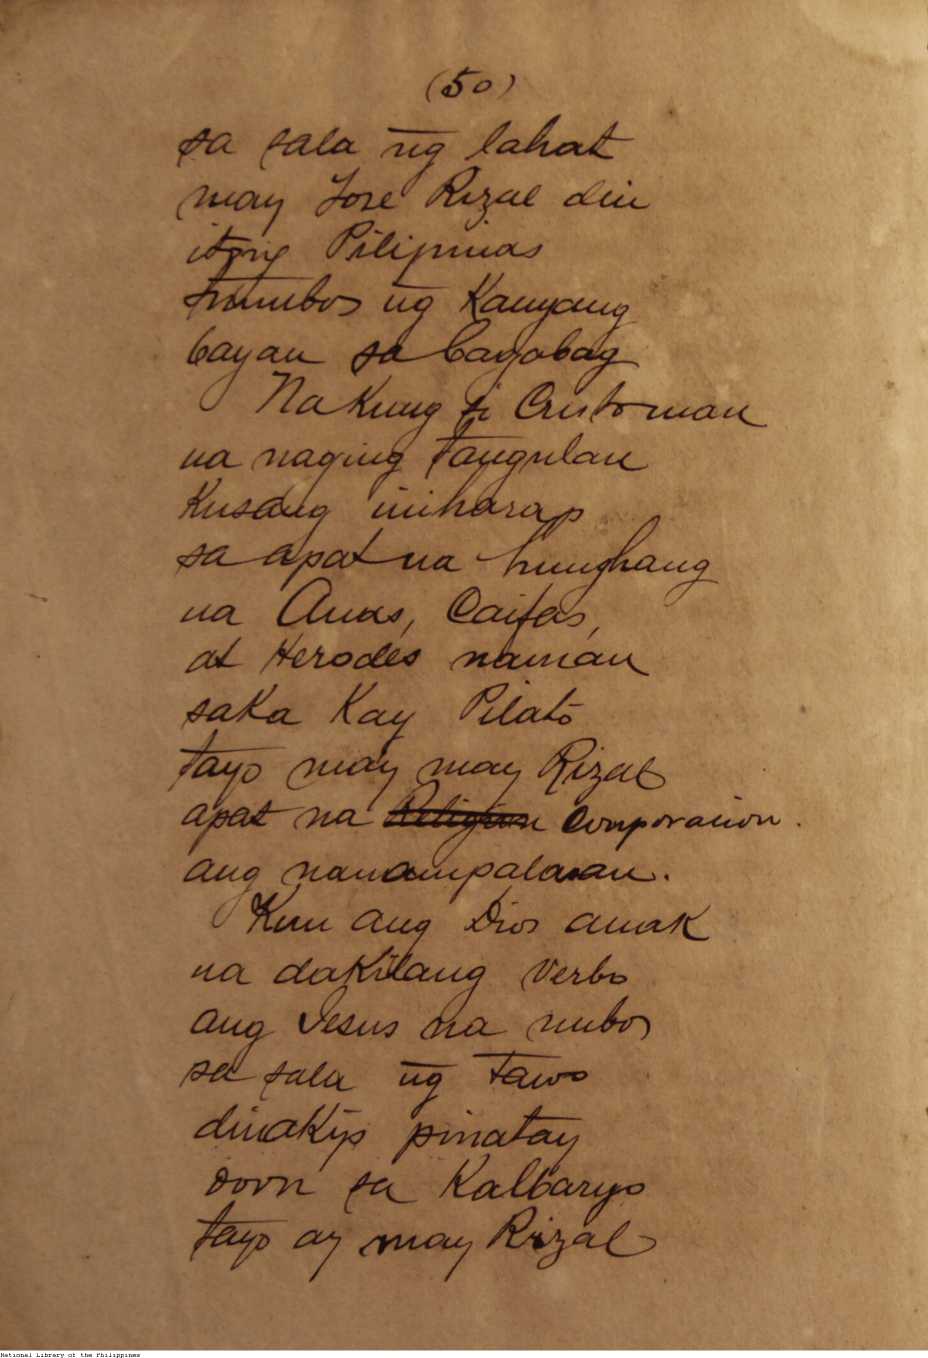 (50)
sa sala n̄g lahat
may Jose Rizal din
itong Pilipinas
tumubos n̄g Kanyang
bayan sa bagabag
Na Kung si Cristo man
na naging tangulan
Kusang iniharap
sa apat na hunghang
na Anas, Caifas,
at Herodes naman
saka Kay Pilato
tayo may may Rizal
apat na Religion Conporacion.
ang nanampalasan.
Kun ang Dios anak
na dakilang Verbo
ang Jesus na nubos
sa sala n̄g tawo
dinakip pinatay
doon sa Kalbaryo
tayo ay may Rizal
National Library of the Philippines